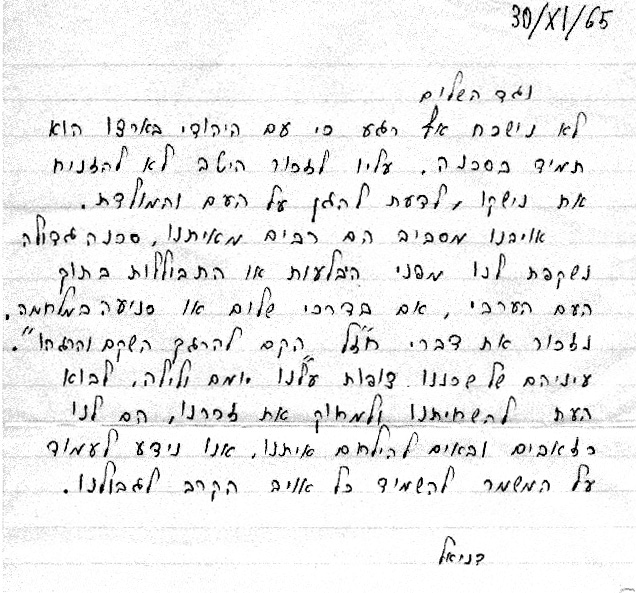 30/XI/65
נגד השלום
לא נישכח אף רגע כי עם היהודי בארצו הוא
תמיד בסכנה. עליו לזכור היטב לא להזניח
את נישקו, לדעת להגן על העם והמולדת.
אויבנו מסביב הם רבים מאיתנו, סכנה גדולה
נשקפת לנו מפני היבלעות או התבוללות בתוך
העם הערבי, אם בדרכי שלום או כניעה במלחמה.
נזכור את דברי חז"ל "הקם להרגך השקם והרגהו".
עיניהם של שכננו צופות עלנו יומם ולילה. לבוא
העת להשחיתנו ולמחוק את זכרנו, הם לנו
כזאבים ובאים להילחם איתנו. אנו נידע לעמוד
על המשמר להשמיד כל אוייב הקרב לגבולנו.
דניאל